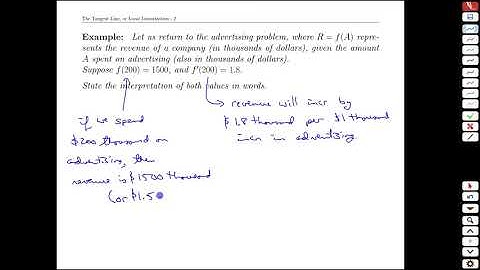 The Tangent Line, or Local Linearization - 2
Example: Let us return to the advertising problem, where R = f(A) repre-
sents the revenue of a company (in thousands of dollars), given the amount
A spent on advertising (also in thousands of dollars).
Suppose f(200) = 1500, and f'(200) = 1.8.
State the interpretation of both values in words.
if we spend
$200 thousand on
advertising, then
revenue is $1500 thousand
(or $1.5
revenue will incr by
$1.8 thousand per $1 thousand
incr in advertising